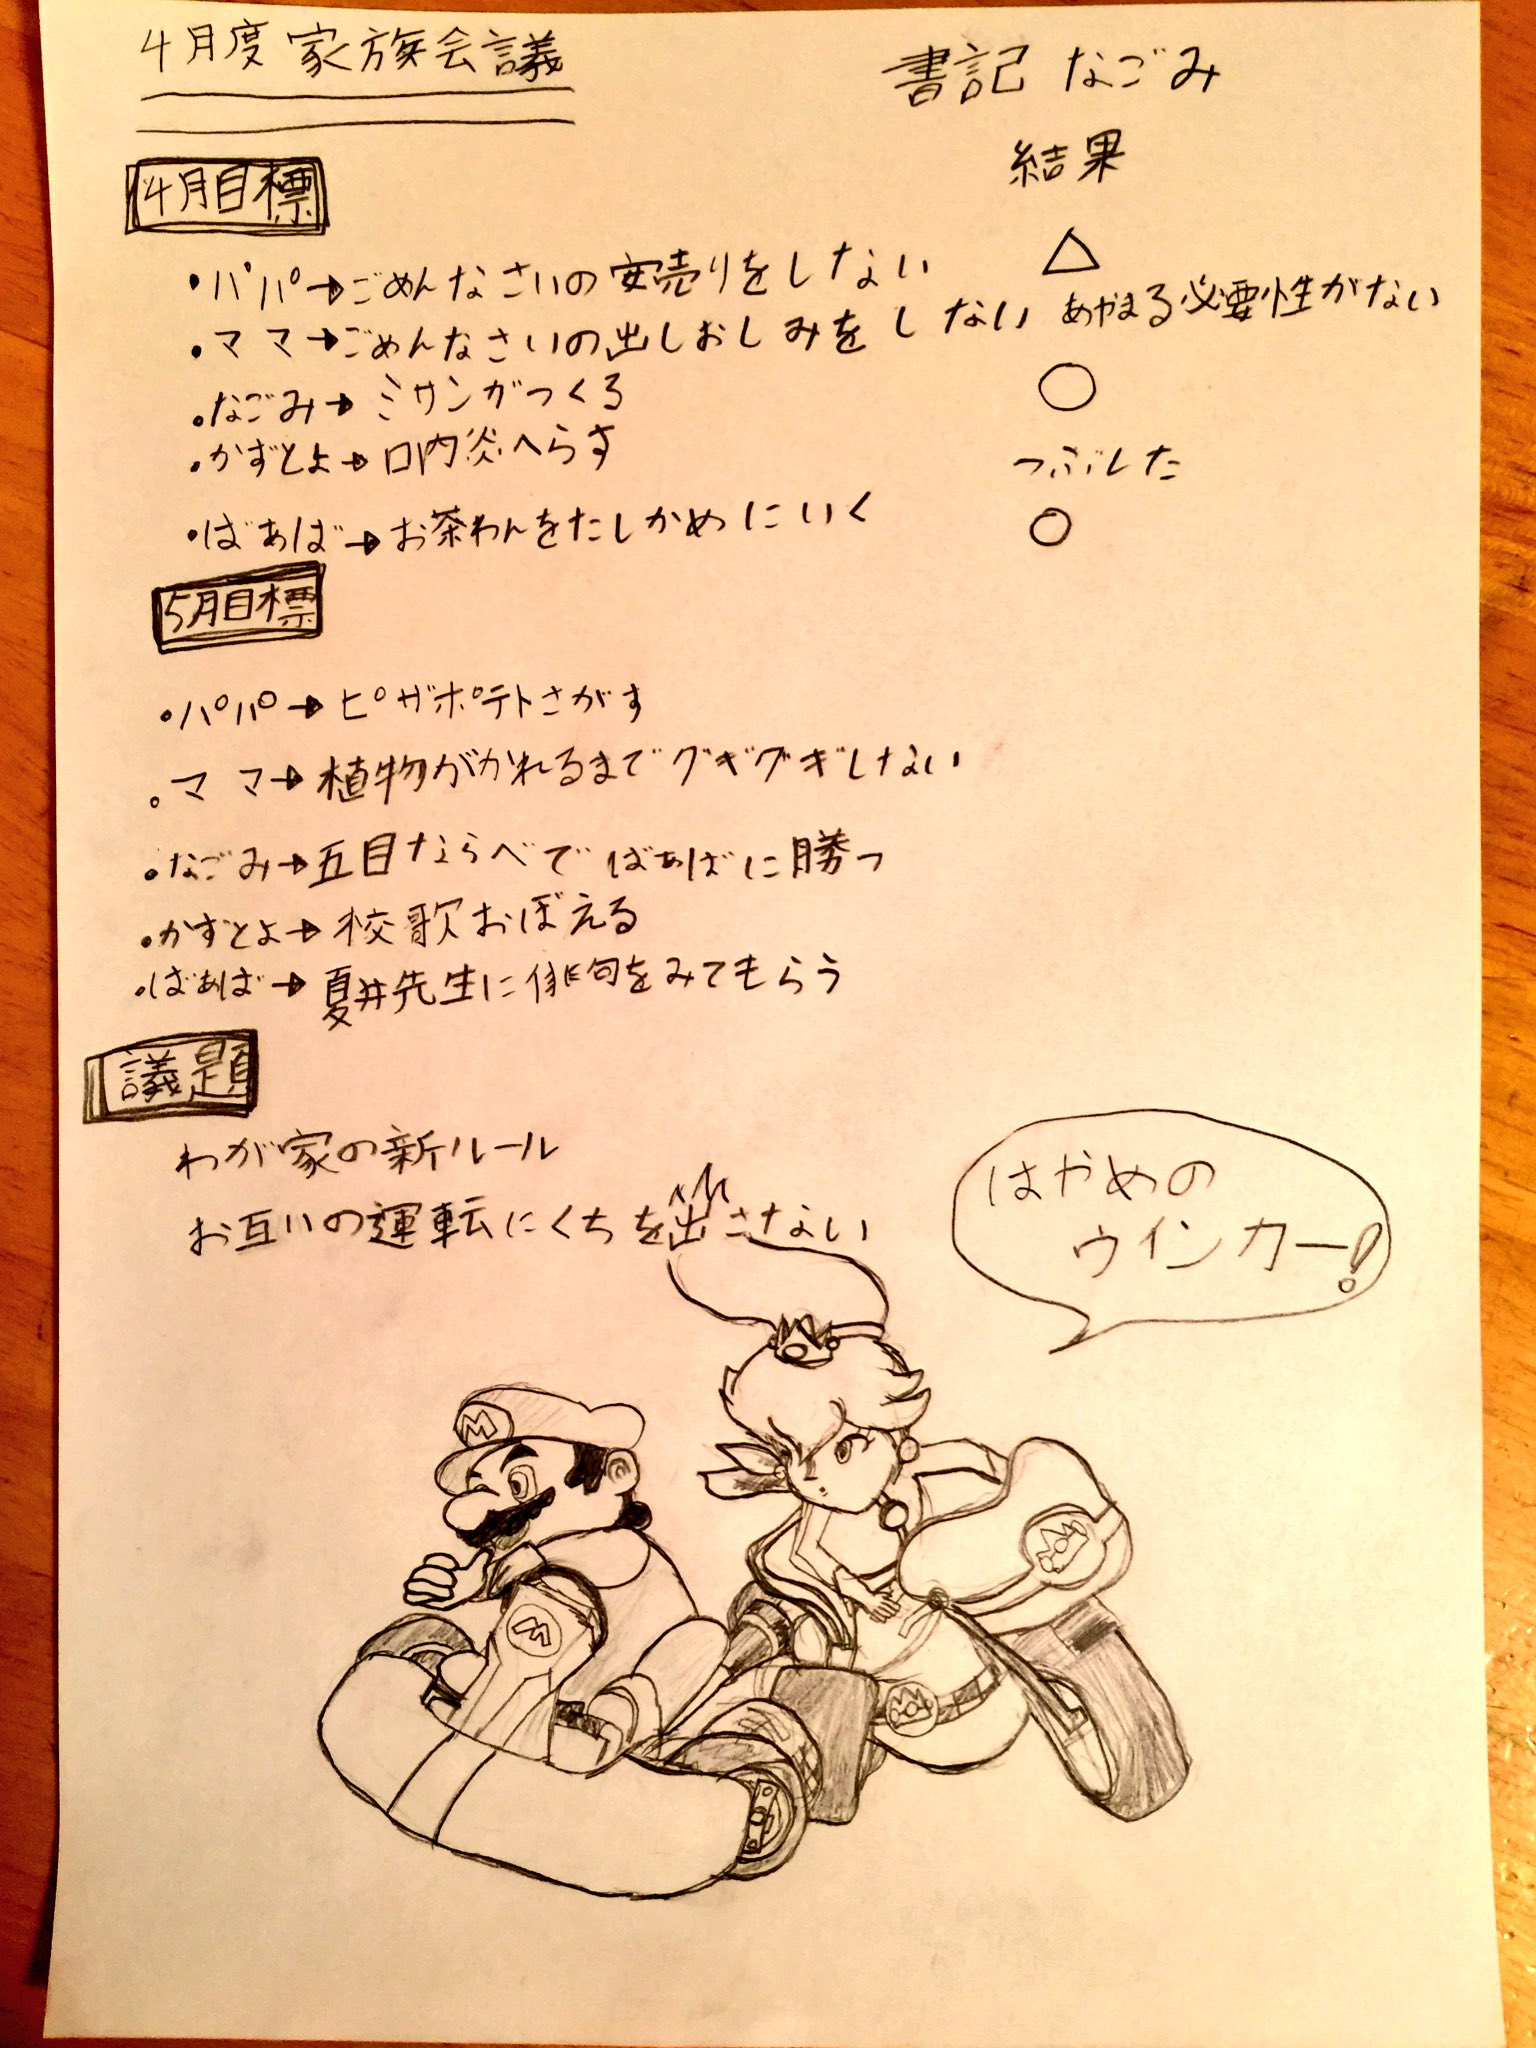 4月度 家族会議
書記 なごみ
4月目標
結果
・パパ→ごめんなさいの安売りをしない △
・ママ→ごめんなさいの出しおしみをしない あやまる必要性がない
・なごみ→ミサンガつくる ○
・かずとよ→口内炎へらす つぶした
・ばあば→お茶わんをたしかめにいく ○
5月目標
・パパ→ピザポテトさがす
・ママ→植物がかれるまでグギグギしない
・なごみ→五目ならべでばあばに勝つ
・かずとよ→校歌おぼえる
・ばあば→夏井先生に俳句をみてもらう
議題
わが家の新ルール
お互いの運転にくちを出さない
はやめの
ウインカー!
M
M